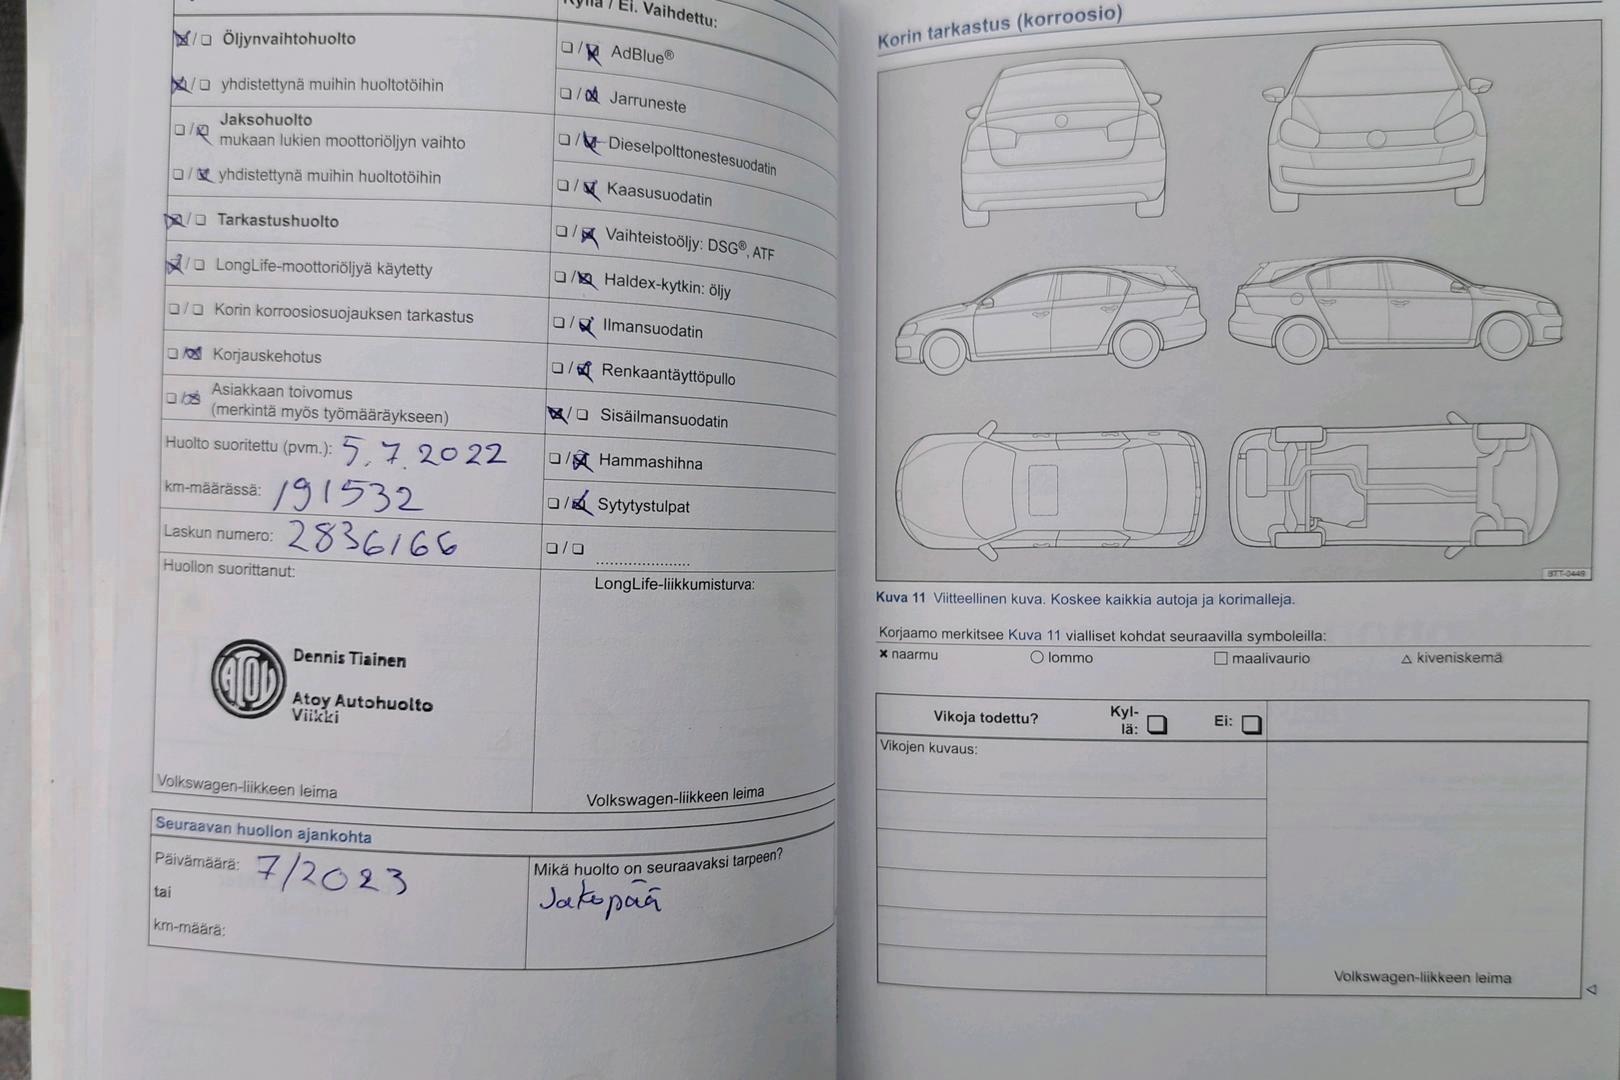 ☒/☐ Öljynvaihtohuolto
☒/☐ yhdistettynä muihin huoltotöihin
☐/☒ Jaksohuolto
mukaan lukien moottoriöljyn vaihto
☐/☒ yhdistettynä muihin huoltotöihin
☒/☐ Tarkastushuolto
☒/☐ LongLife-moottoriöljyä käytetty
☐/☐ Korin korroosiosuojauksen tarkastus
☐/☒ Korjauskehotus
☐/☒ Asiakkaan toivomus
(merkintä myös työmääräykseen)
Huolto suoritettu (pvm.): 5.7.2022
km-määrässä: 191532
Laskun numero: 2836166
Huollon suorittanut:
ATOY
Dennis Tiainen
Atoy Autohuolto
Viikki
Volkswagen-liikkeen leima
Kyllä / Ei. Vaihdettu:
☐/☒ AdBlue®
☐/☒ Jarruneste
☐/☒ Dieselpolttonestesuodatin
☐/☒ Kaasusuodatin
☐/☒ Vaihteistoöljy: DSG®, ATF
☐/☒ Haldex-kytkin: öljy
☐/☒ Ilmansuodatin
☐/☒ Renkaantäyttöpullo
☒/☐ Sisäilmansuodatin
☐/☒ Hammashihna
☐/☒ Sytytystulpat
☐/☐ ......................
LongLife-liikkumisturva:
Volkswagen-liikkeen leima
Seuraavan huollon ajankohta
Päivämäärä: 7/2023
tai
km-määrä:
Mikä huolto on seuraavaksi tarpeen?
Jakopää
Korin tarkastus (korroosio)
BTT-0449
Kuva 11 Viitteellinen kuva. Koskee kaikkia autoja ja korimalleja.
Korjaamo merkitsee Kuva 11 vialliset kohdat seuraavilla symboleilla:
× naarmu ○ lommo □ maalivaurio △ kiveniskemä
Vikoja todettu? Kyl-
lä: ☐ Ei: ☐
Vikojen kuvaus:
Volkswagen-liikkeen leima